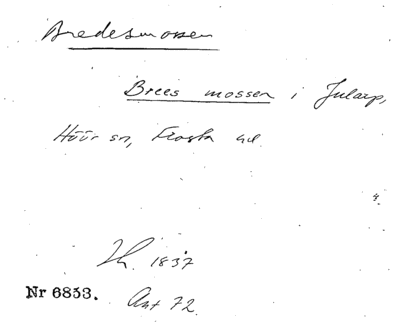 Bredesmossen
Brees mossen i Jularp,
Höör sn, Frosta hd.
4.
Th. 1837
Nr 6833. Ant 72.